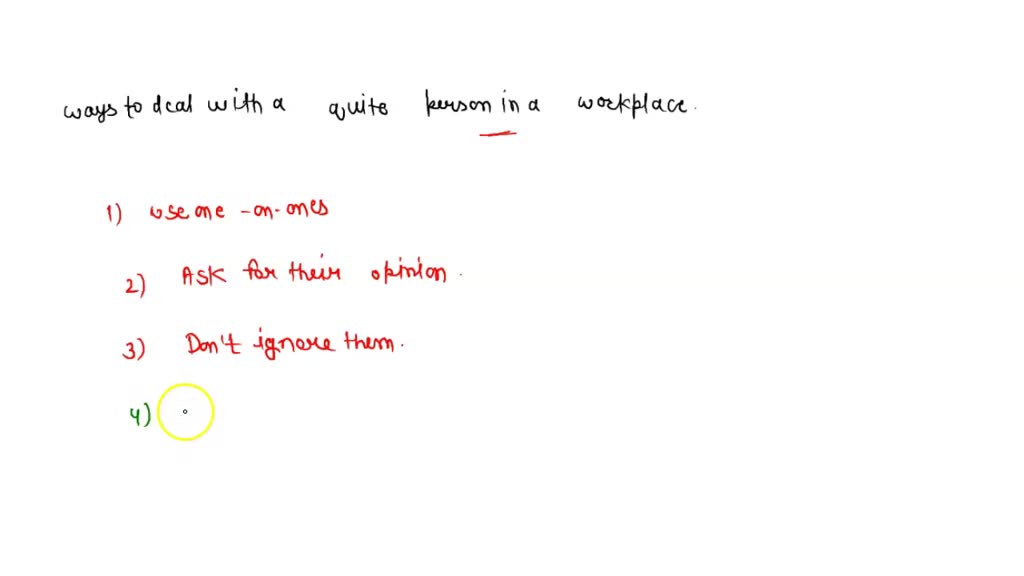 ways to deal with a quite person in a workplace.
1) use one-on-ones
2) Ask for their opinion.
3) Don't ignore them.
4)